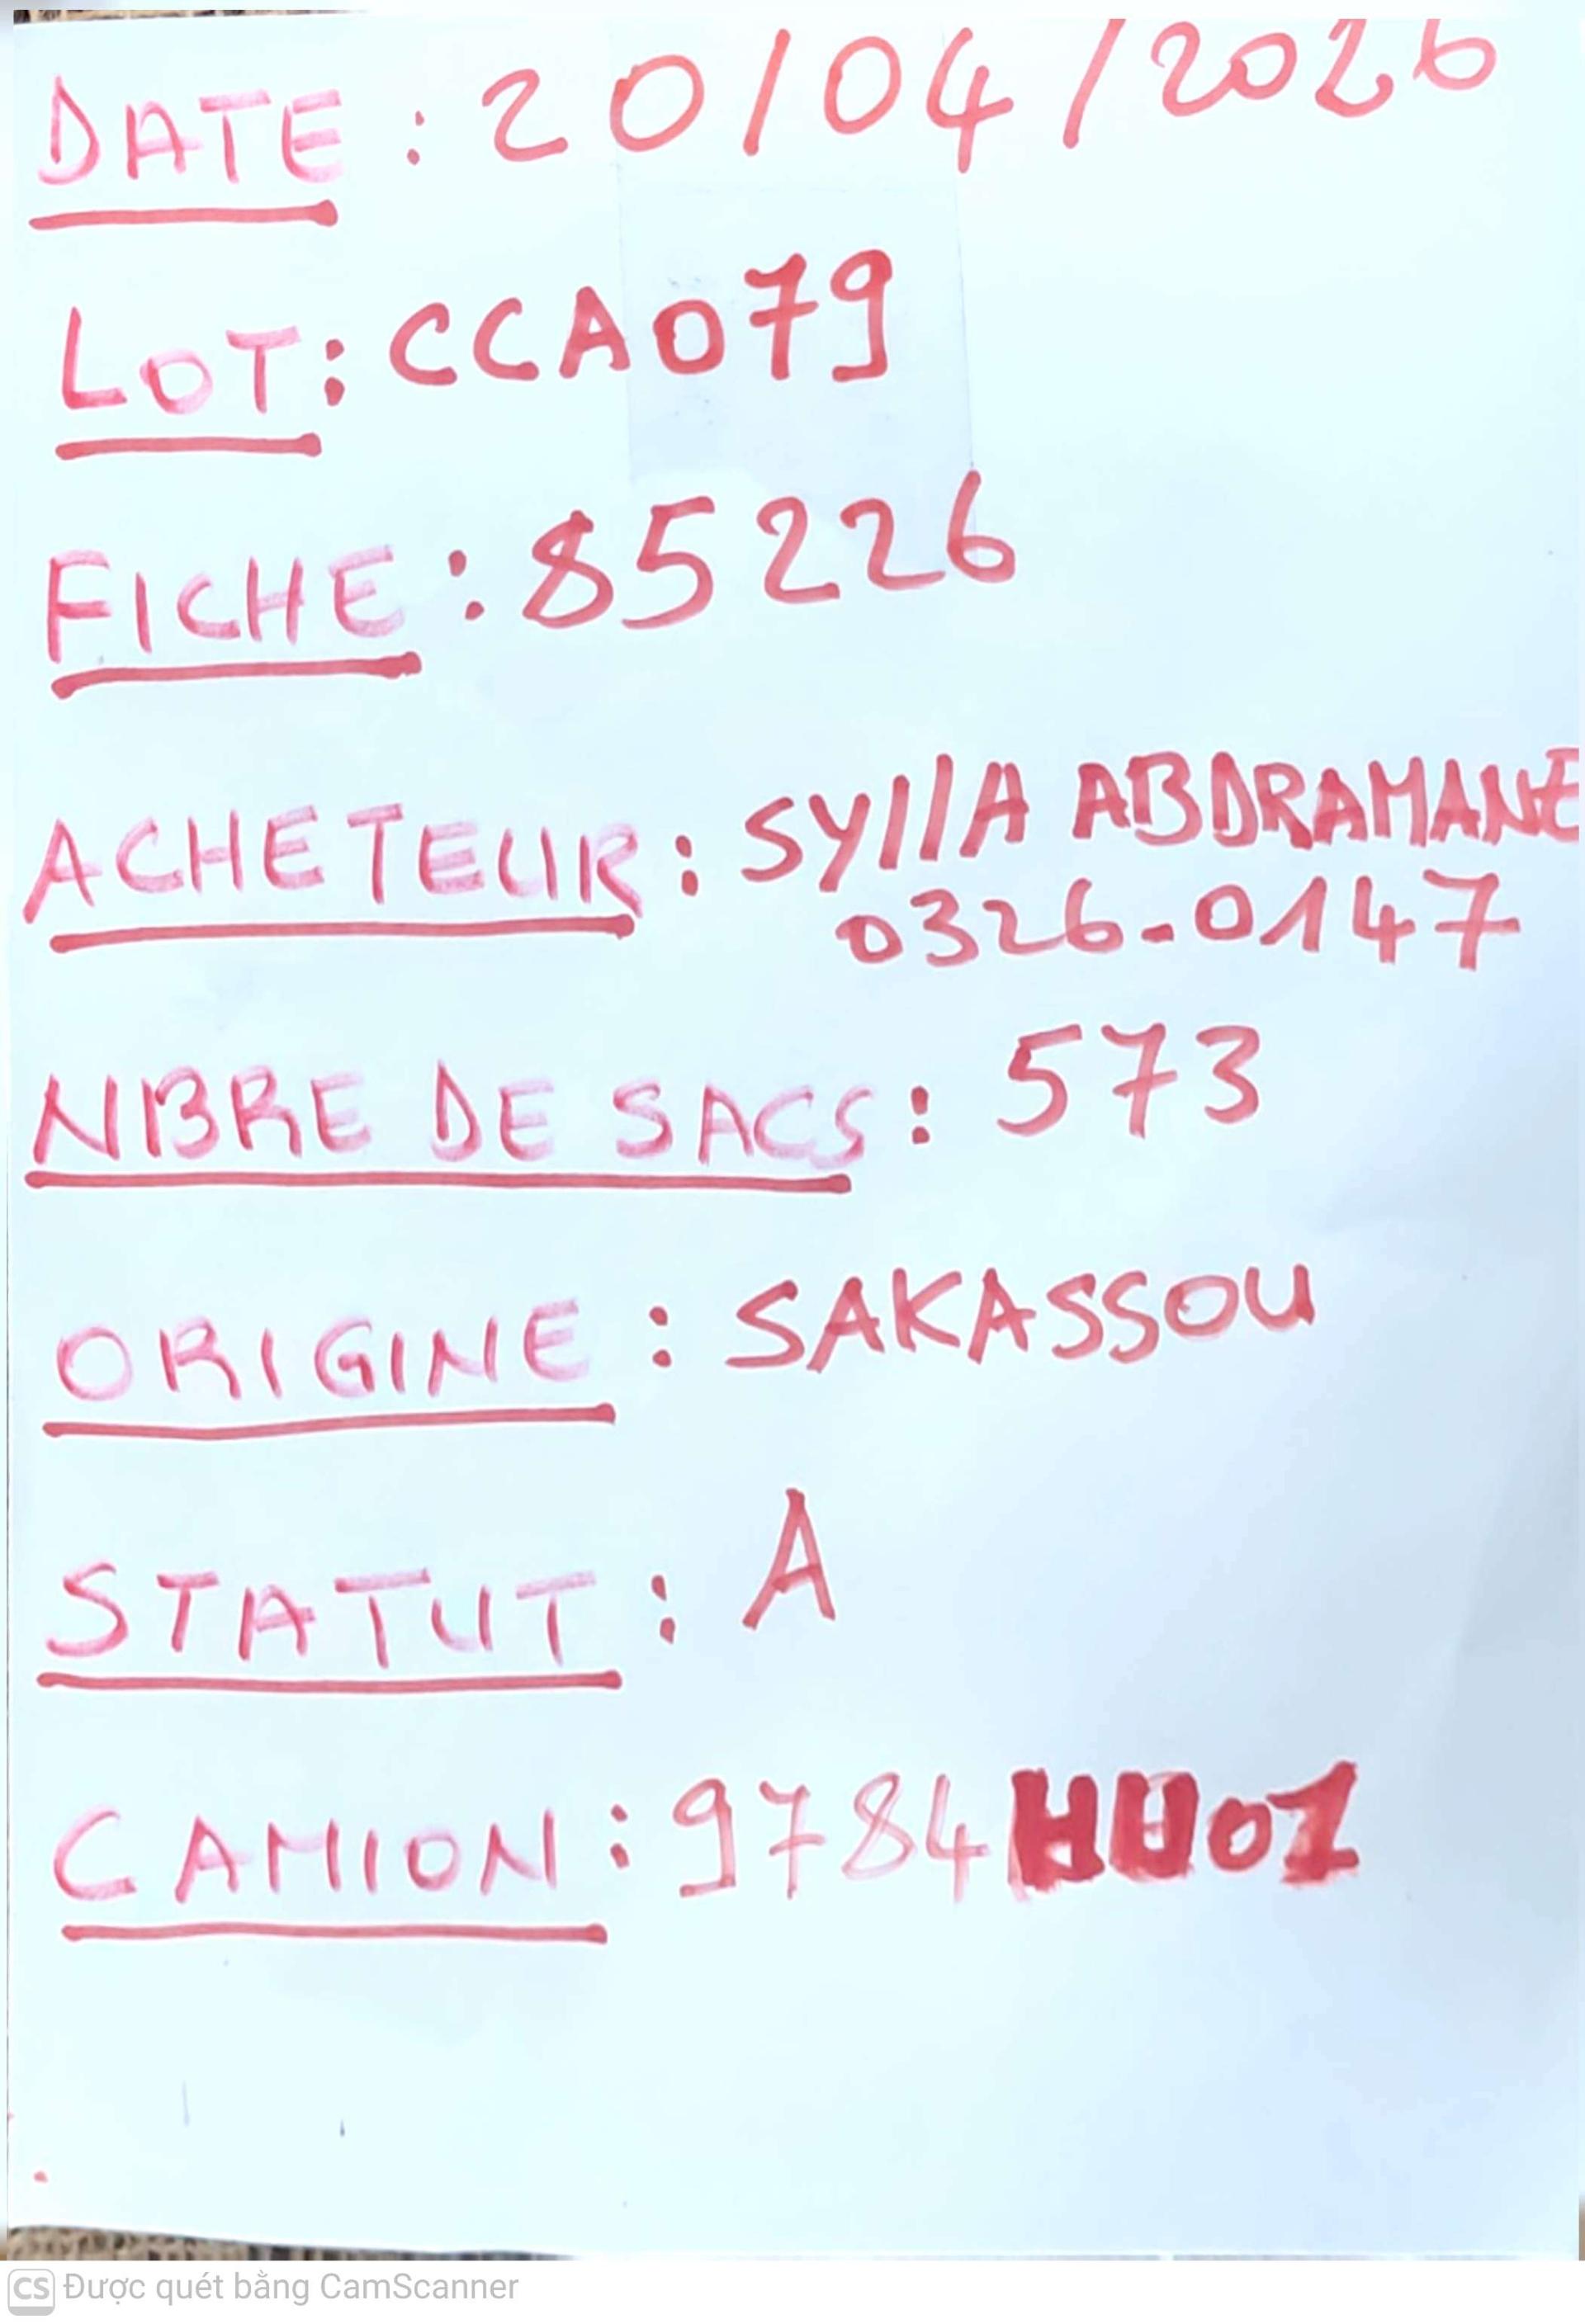 DATE : 20/04/2026
LOT : CCA079
FICHE : 85226
ACHETEUR : SYllA ABDRAMANE
0326-0147
NBRE DE SACS : 573
ORIGINE : SAKASSOU
STATUT : A
CAMION : 9784HU01
CS Được quét bằng CamScanner